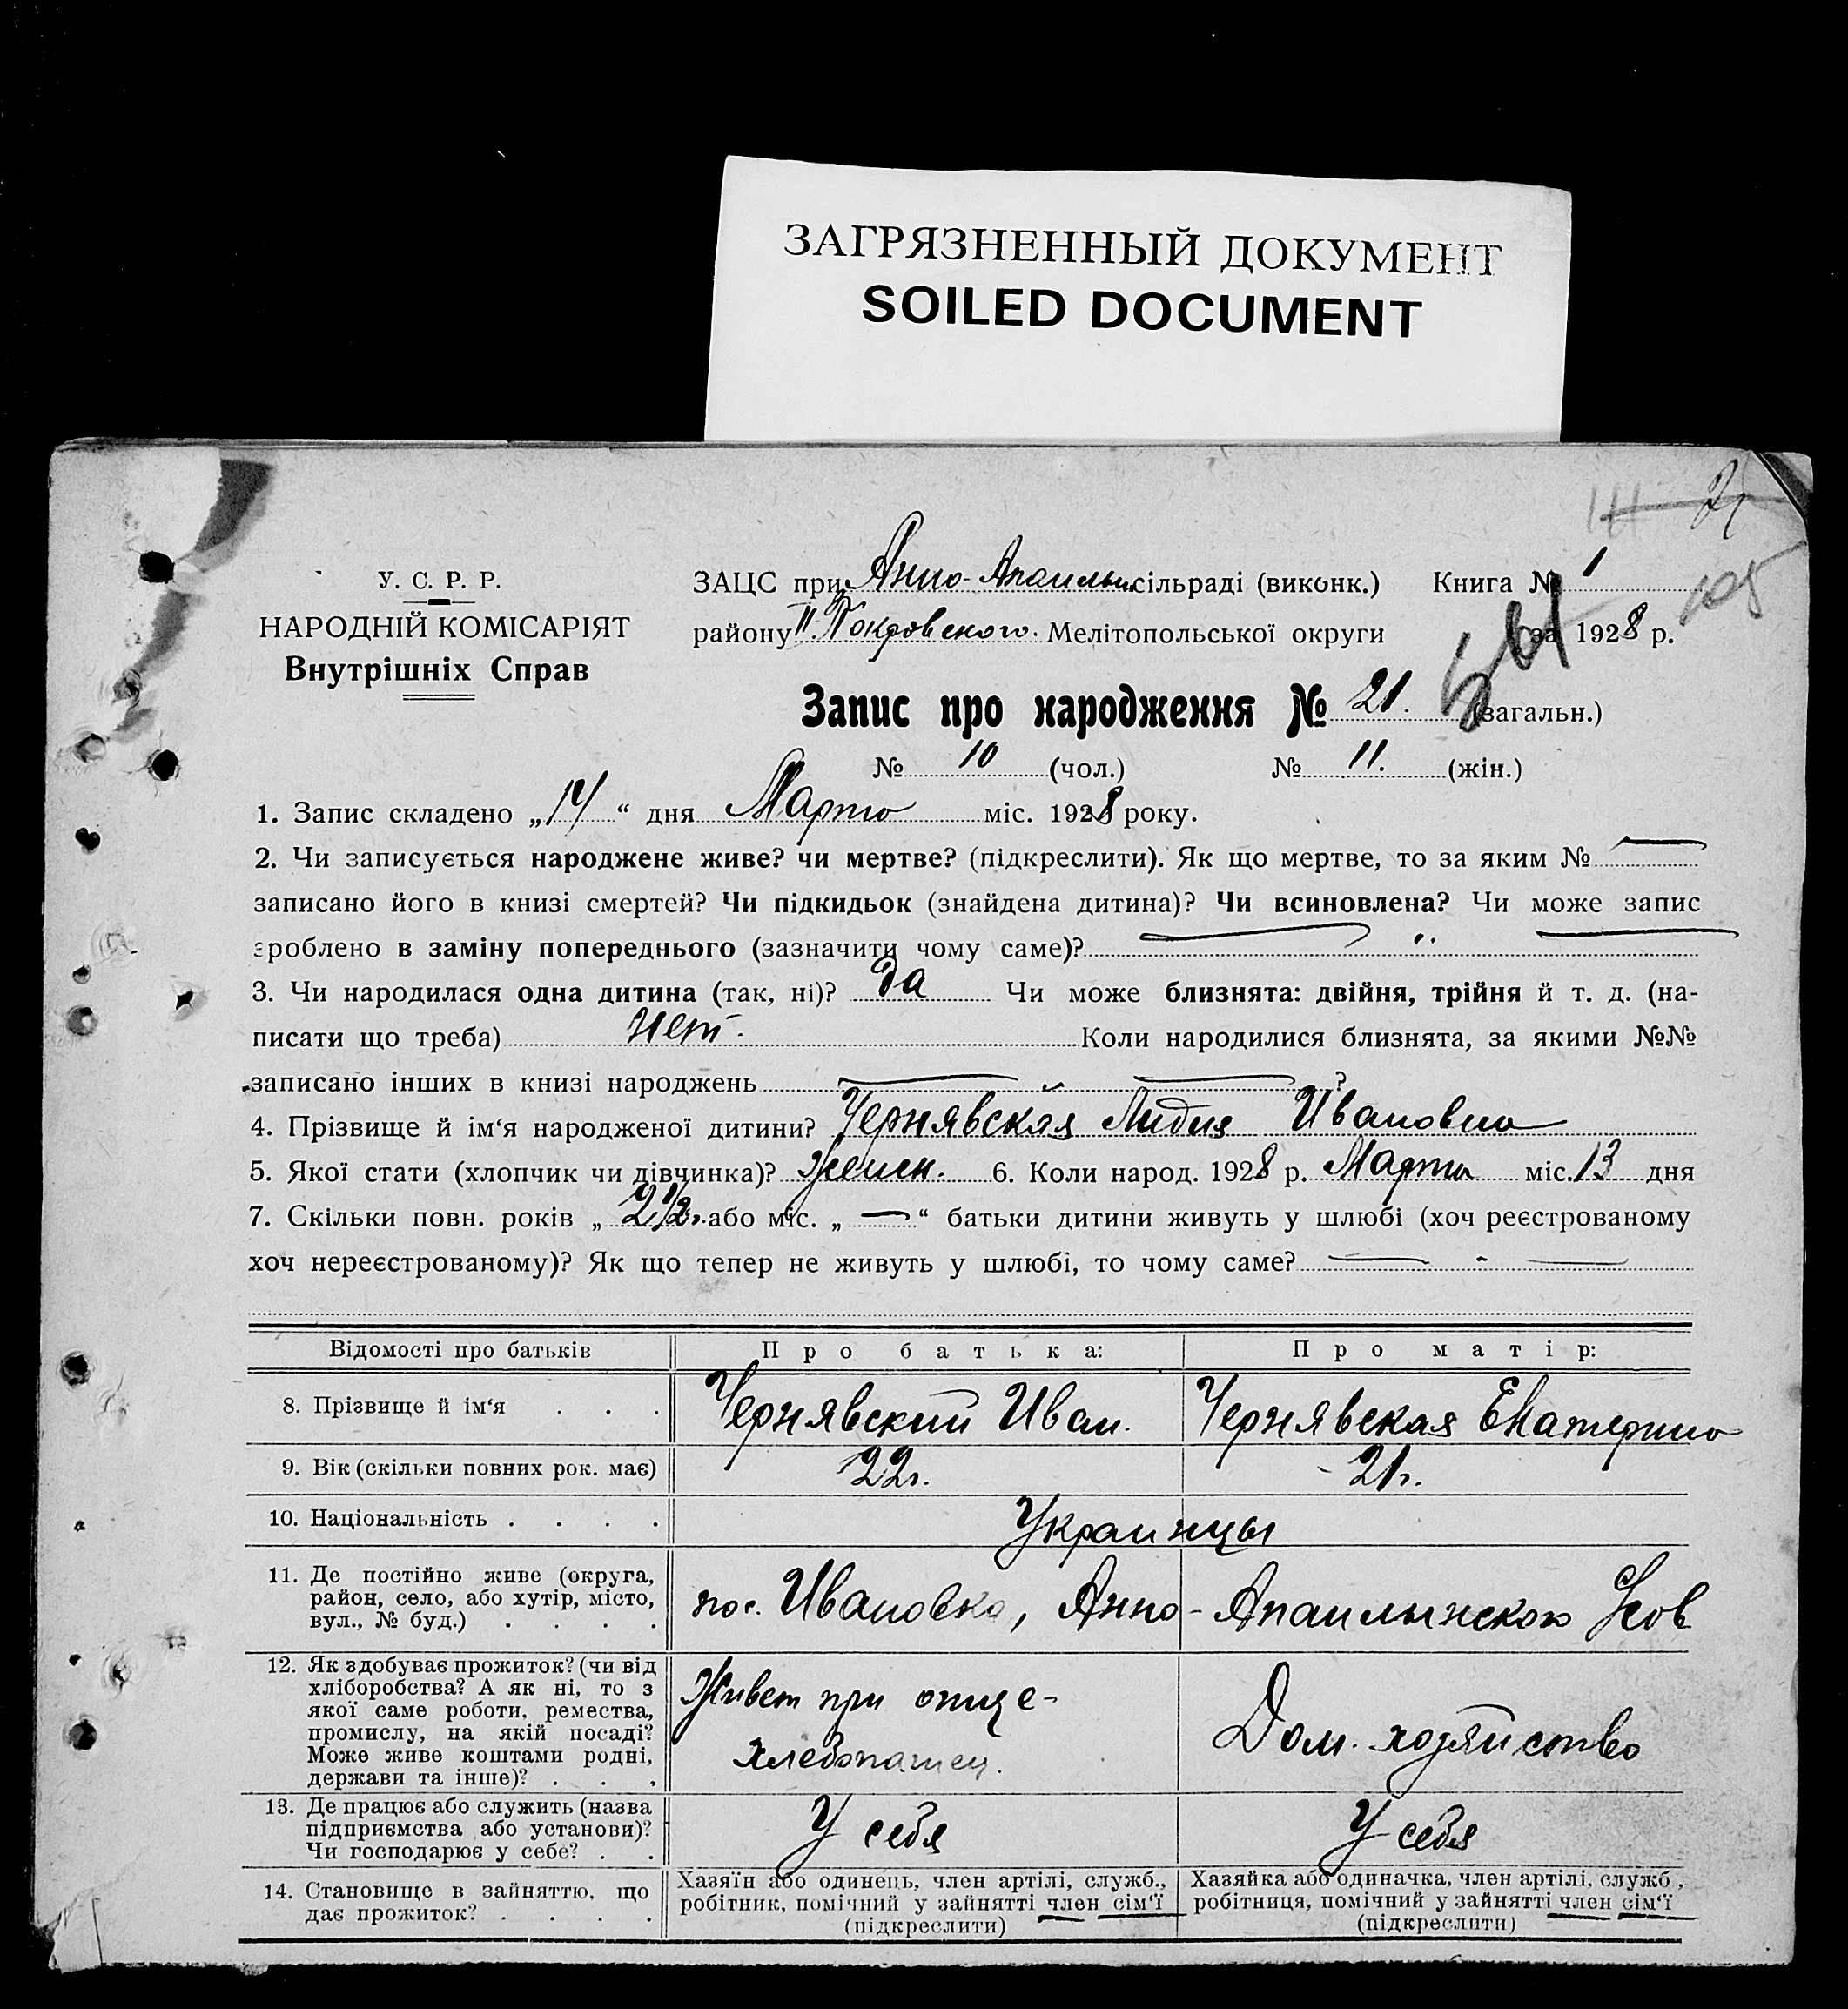 ЗАГРЯЗНЕННЫЙ ДОКУМЕНТ
SOILED DOCUMENT
21
105
У. С. Р. Р.
НАРОДНІЙ КОМІСАРІЯТ
Внутрішніх Справ
ЗАЦС при Анно- сільраді (виконк.) Книга № 1
району П. Покровского. Мелітопольської округи за 1928 р.
Запис про народження № 21. (загальн.)
№ 10 (чол.) № 11. (жін.)
1. Запис складено „14“ дня Марта міс. 1928 року.
2. Чи записується народжене живе? чи мертве? (підкреслити). Як що мертве, то за яким № —
записано його в книзі смертей? Чи підкидьок (знайдена дитина)? Чи всиновлена? Чи може запис
зроблено в заміну попереднього (зазначити чому саме)?
3. Чи народилася одна дитина (так, ні)? да Чи може близнята: двійня, трійня й т. д. (на-
писати що треба) нет. Коли народилися близнята, за якими №№
записано інших в книзі народжень ?
4. Прізвище й ім‘я народженої дитини? Чернявская Лидия Ивановна
5. Якої стати (хлопчик чи дівчинка)? Женск. 6. Коли народ. 1928 р. Марта міс. 13 дня
7. Скільки повн. років „ 2 1/2 г. або міс. „ — “ батьки дитини живуть у шлюбі (хоч реєстрованому
хоч нереєстрованому)? Як що тепер не живуть у шлюбі, то чому саме? — - —
Відомості про батьків Про батька: Про матір:
8. Прізвище й ім‘я . . . Чернявский Иван. Чернявская Екатерина
9. Вік (скільки повних рок. має) 22г. 21г.
10. Національність . . . . Украинцы
11. Де постійно живе (округа,
район, село, або хутір, місто,
вул., № буд.) . . . .
пос. Ивановка, Анно-
12. Як здобуває прожиток? (чи від
хліборобства? А як ні, то з
якої саме роботи, ремества,
промислу, на якій посаді?
Може живе коштами родні,
держави та інше)? . . .
Живет при отце-
хлебопашец.
Дом. хозяйство
13. Де працює або служить (назва
підприємства або установи)?
Чи господарює у себе? . .
У себя У себя
14. Становище в зайняттю, що
дає прожиток? . . . .
Хазяїн або одинець, член артілі, служб.,
робітник, помічний у зайнятті член сім‘ї
(підкреслити)
Хазяйка або одиначка, член артілі, служб.,
робітниця, помічний у зайнятті член сім‘ї
(підкреслити)